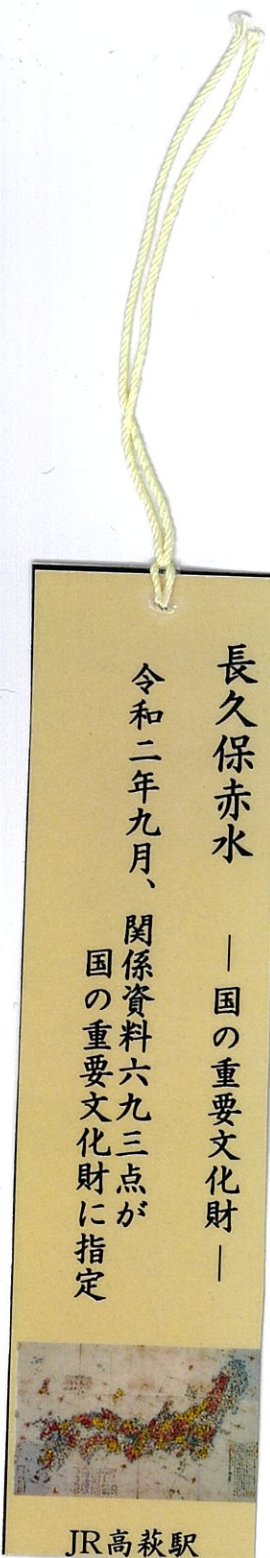 長久保赤水 ―国の重要文化財―
令和二年九月、関係資料六九三点が
国の重要文化財に指定
JR高萩駅